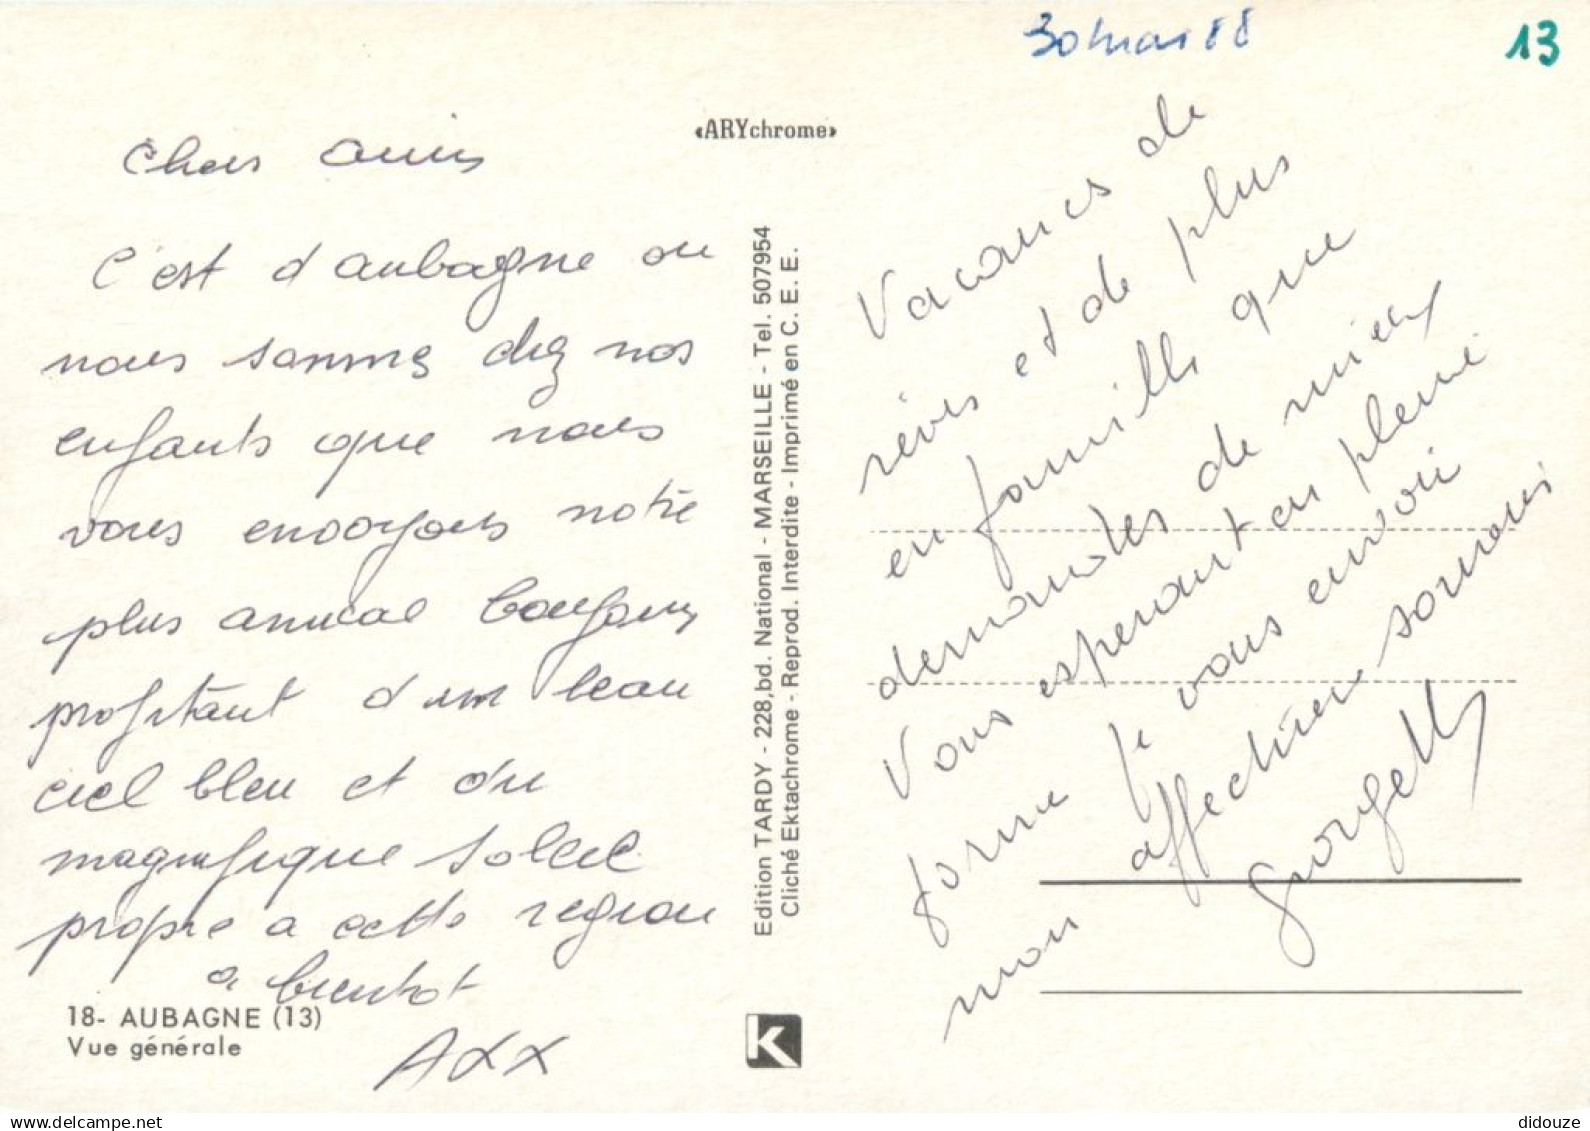 30 mars 88
13
«ARYchrome»
Chers amis
C'est d'aubagne ou
nous somme chez nos
enfants que nous
vous envoyons notre
plus amical bonjour
profitant d'un beau
ciel bleu et d'un
magnifique soleil
propre a cette region
a bientot
18- AUBAGNE (13)
Vue générale
Edition TARDY - 228,bd. National - MARSEILLE - Tel. 507954
Cliché Ektachrome - Reprod. Interdite - Imprimé en C. E. E.
K
Vacances de
rêves et de plus
en famille que
demander de mieux
Vous esperant en pleine
forme je vous envoi
mon affectueux souvenir
Georgette
didouze